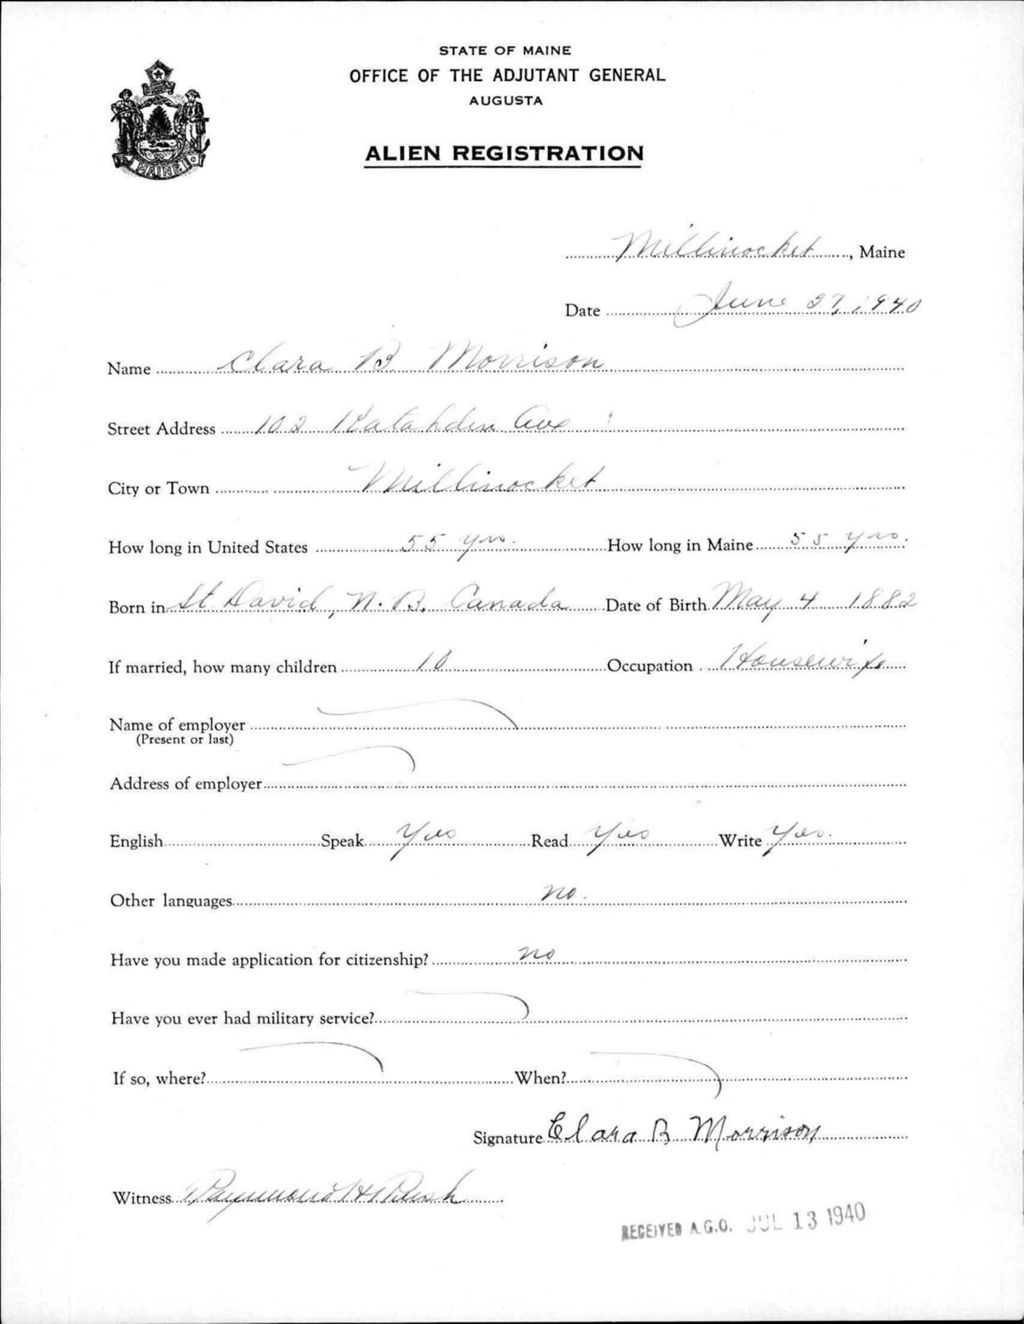 STATE OF MAINE
OFFICE OF THE ADJUTANT GENERAL
AUGUSTA
ALIEN REGISTRATION
MAINE
Millinocket, Maine
Date June 27, 1940
Name Clara B. Morrison
Street Address 102 Katahdin Ave
City or Town Millinocket
How long in United States 55 yrs. How long in Maine 55 yrs.
Born in St David, N.B. Canada Date of Birth May 4 1882
If married, how many children 10 Occupation Housewife
Name of employer
(Present or last)
Address of employer
English Speak Yes Read Yes Write Yes.
Other languages no.
Have you made application for citizenship? no
Have you ever had military service?
If so, where? When?
Signature Clara B Morrison
Witness Raymond H Rush
RECEIVED A.G.O. JUL 13 1940